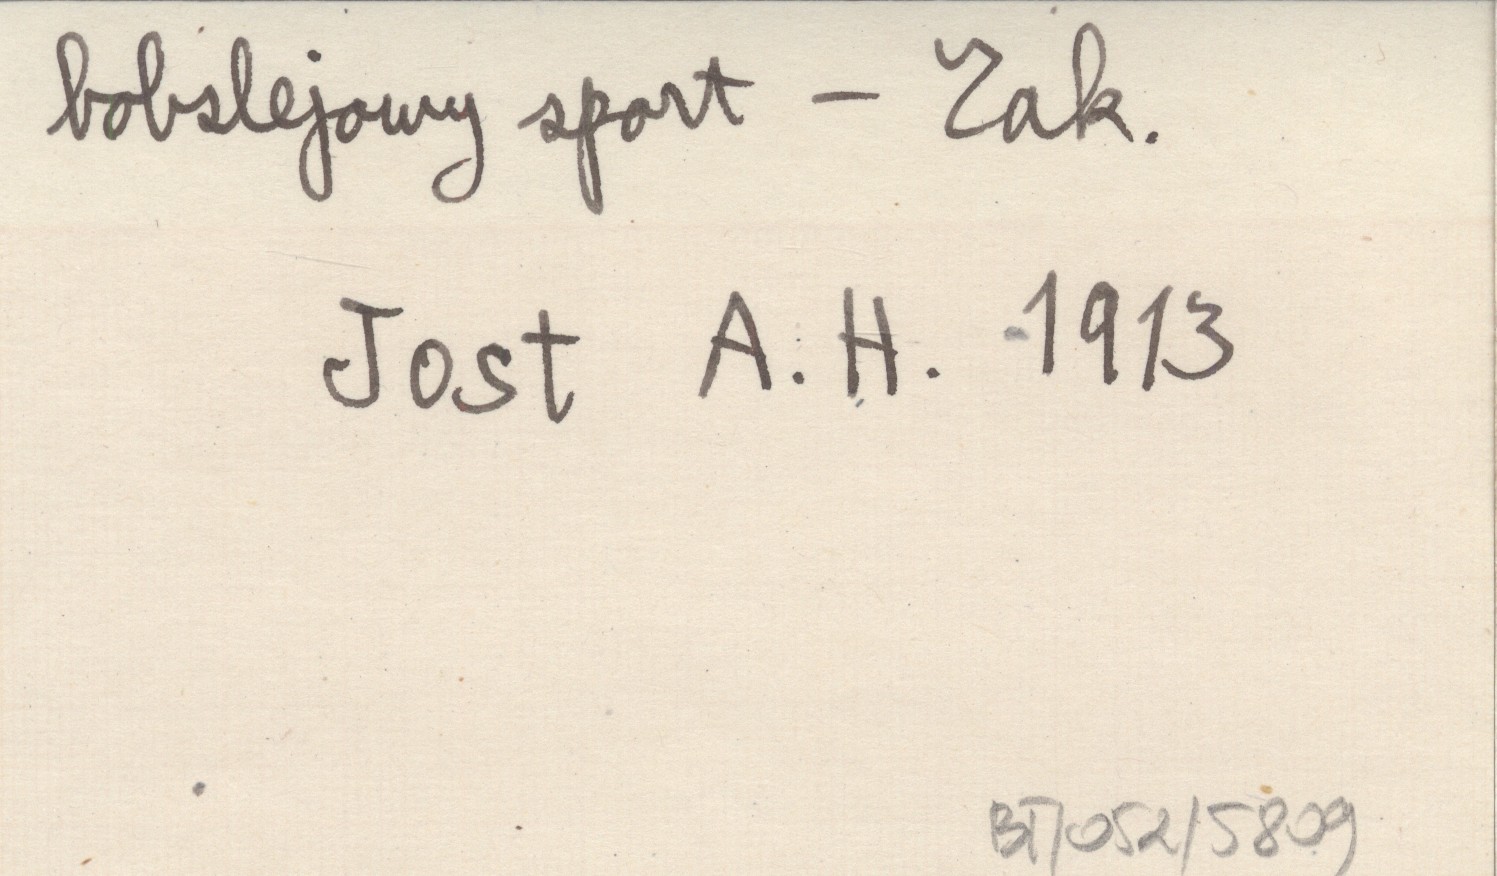 bobslejowy sport - Zak.
Jost A. H. 1913
BT/052/5809